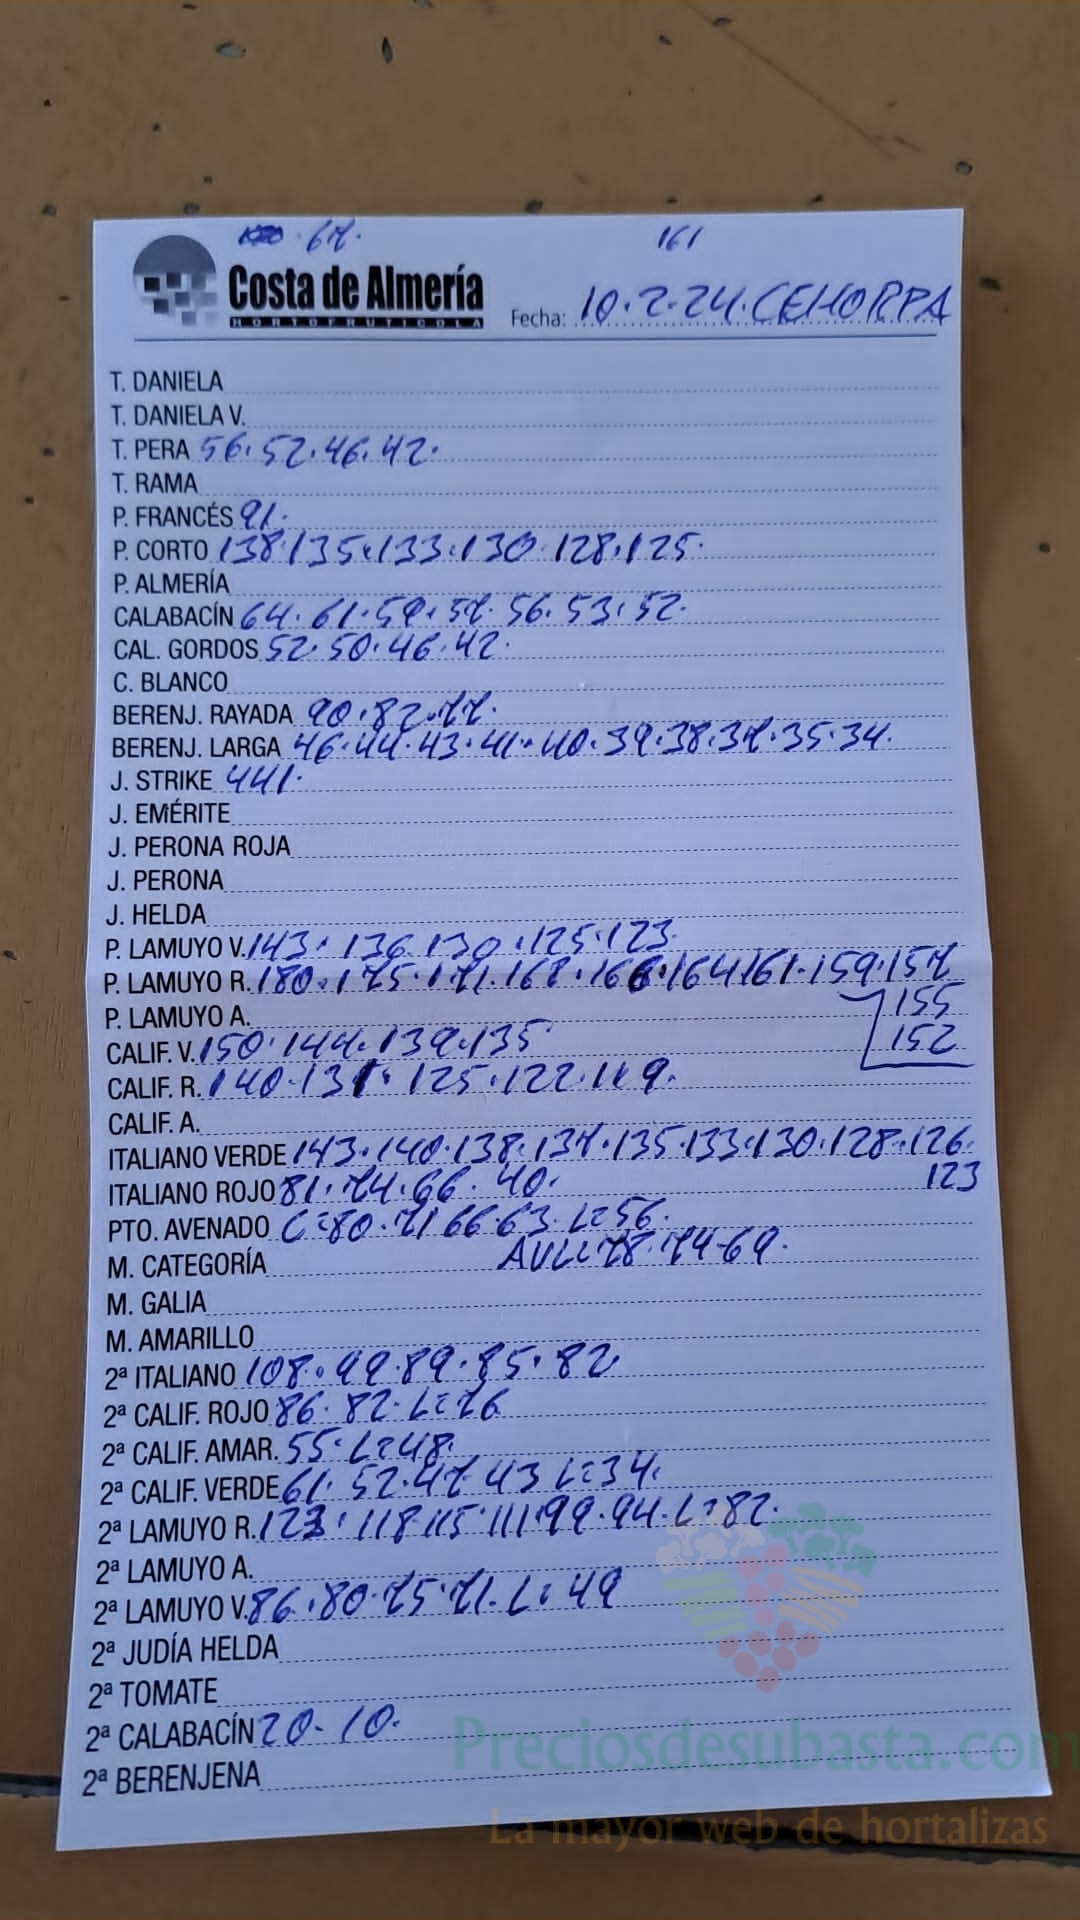 67. 161
Costa de Almería
HORTOFRUTICOLA
Fecha: 10.2.24.CEHORPA
T. DANIELA
T. DANIELA V.
T. PERA 56.52.46.42.
T. RAMA
P. FRANCÉS 91.
P. CORTO 138.135.133.130.128.125.
P. ALMERÍA
CALABACÍN 64.61.59.57.56.53.52.
CAL. GORDOS 52.50.46.42.
C. BLANCO
BERENJ. RAYADA 90.82.77.
BERENJ. LARGA 46.44.43.41.40.39.38.37.35.34.
J. STRIKE 441.
J. EMÉRITE
J. PERONA ROJA
J. PERONA
J. HELDA
P. LAMUYO V. 143.136.130.125.123.
P. LAMUYO R. 180.175.171.168.166.164.161.159.157
155
P. LAMUYO A.
152
CALIF. V. 150.144.139.135
CALIF. R. 140.131.125.122.119.
CALIF. A.
ITALIANO VERDE 143.140.138.137.135.133.130.128.126.
123
ITALIANO ROJO 81.74.66.40.
PTO. AVENADO C=80.71 66.63. L=56.
AVLL=78.74.69.
M. CATEGORÍA
M. GALIA
M. AMARILLO
2ª ITALIANO 108.99.89.85.82
2ª CALIF. ROJO 86.82.L=76
2ª CALIF. AMAR. 55.L=48.
2ª CALIF. VERDE 61.52.47.43 L=34.
2ª LAMUYO R. 123.118.115.111.99.94.L=82.
2ª LAMUYO A.
2ª LAMUYO V. 86.80.75.71.L=49
2ª JUDÍA HELDA
2ª TOMATE
2ª CALABACÍN 20.10.
2ª BERENJENA
Preciosdesubasta.com
La mayor web de hortalizas